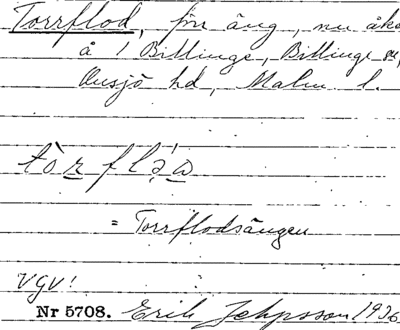 Torrflod, förr äng, nu åke
å 1 Billinge, Billinge sn,
Onsjö hd, Malm l.
tòrflǝ́a
= Torrflodsängen
VGV!
Nr 5708. Erik Jeppsson 1936